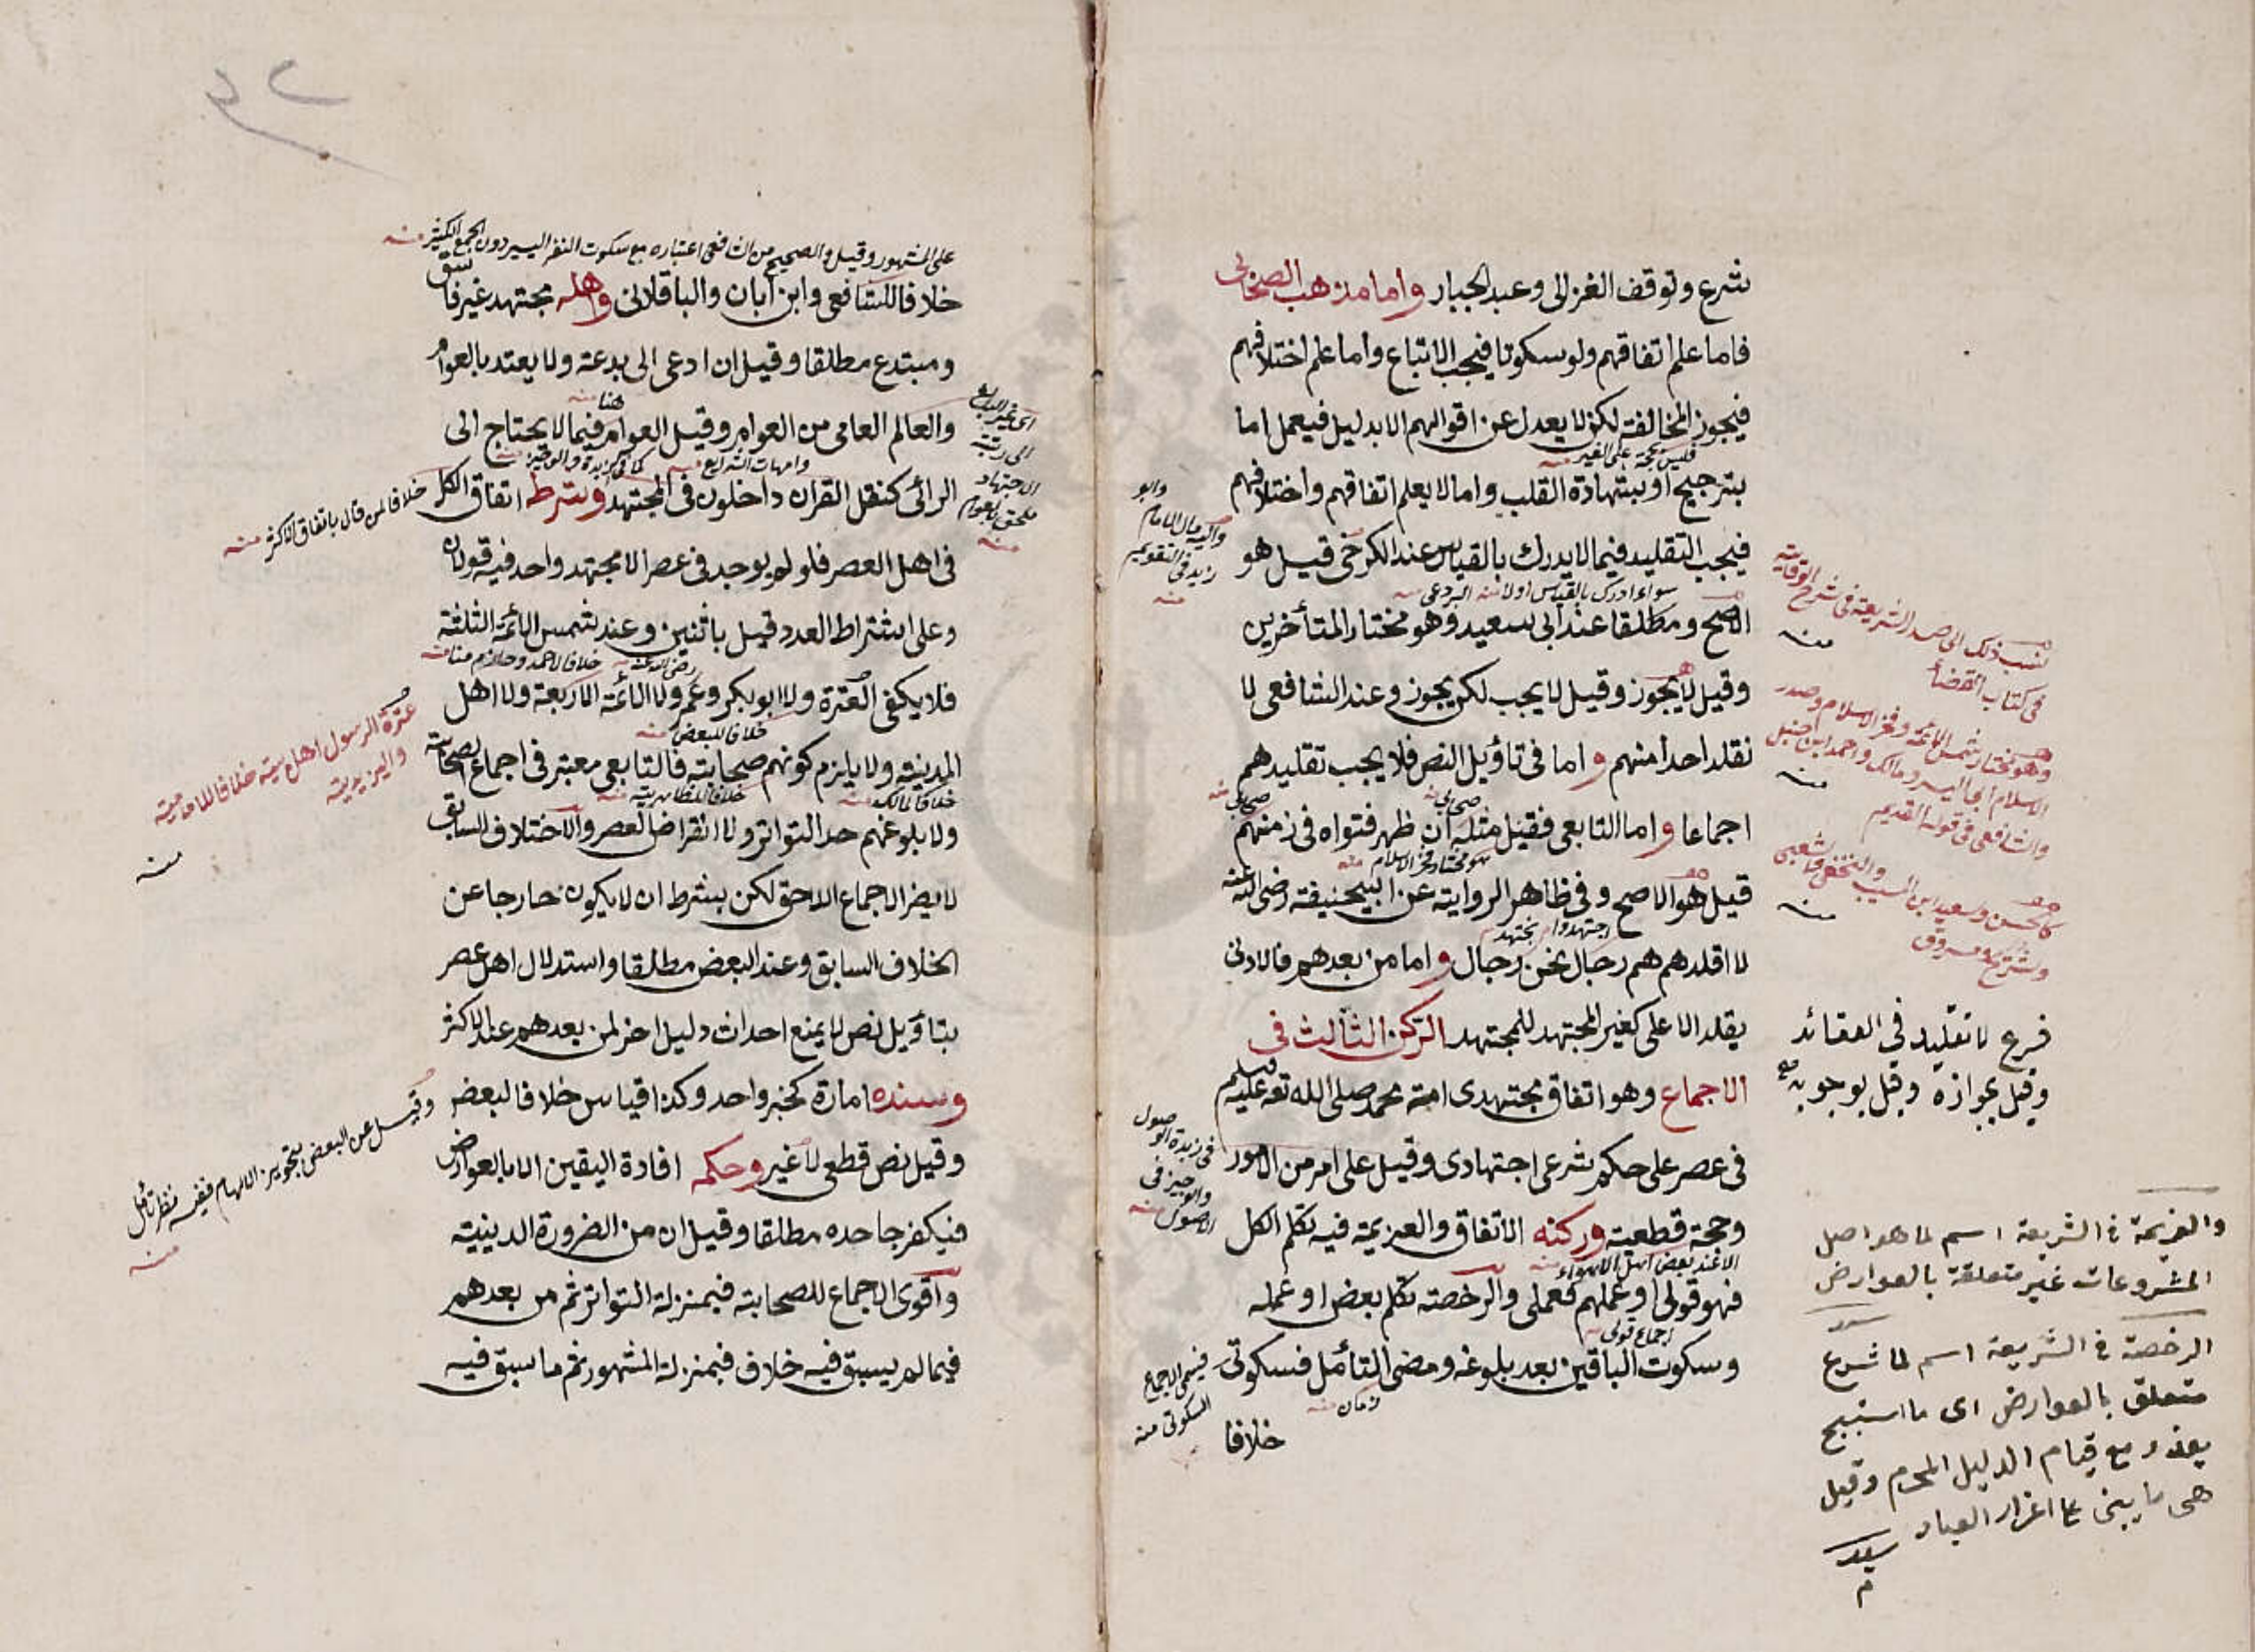 شرع وتوقف الغزالى وعبد الجبار واما مذهب الصحابى
فاما علم اتفاقهم ولو سكوتا فيجب الاتباع واما علم اختلافهم
فيجوز المخالفة لكن لا يعدل عن اقوالهم الا بدليل فيعمل اما
فليس بحجة على الغير منه
بترجيح او بشهادة القلب واما لا يعلم اتفاقهم واختلافهم
فيجب التقليد فيما لا يدرك بالقياس عند الكرخى قيل هو
سواء ادرك بالقياس اولا منه البردعى منه
الاصح ومطلقا عند ابى سعيد وهو مختار المتأخرين
وقيل لا يجوز وقيل لا يجب لكن يجوز وعند الشافعى لا
نقلد احدا منهم واما فى تاؤيل النص فلا يجب تقليدهم
صحابى منه صحابى منه
اجماعا واما التابعى فقيل مثله ان ظهر فتواه فى زمنهم
هو مختار فخر الاسلام منه
قيل هو الاصح وفى ظاهر الرواية عن ابيحنيفة رضى الله عنه
اجتهدوا نجتهد
لا اقلدهم هم رجال نحن رجال واما من بعدهم فالادنى
يقلد الاعلى كغير المجتهد للمجتهد الركن الثالث فى
الاجماع وهو اتفاق مجتهدى امة محمد صلى الله تع عليه وسلم
فى عصر على حكم شرعى اجتهادى وقيل على امر من الامور
وحجة قطعية وركنه الاتفاق والعزيمة فيه تكلم الكل
الا عند بعض اهل الاهواء منه
فهو قولى او عملهم فعملى والرخصة تكلم بعض او عمله
اجماع قولى منه
وسكوت الباقين بعد بلوغه ومضى التأمل فسكوتى
زمان منه
خلافا
واليه مال الامام
وابو
زيد فى التقويم
منه
فى زبدة الوصول
والوجيز فى
الاصول منه
فيسمى الاجماع
السكوتى منه
نسب ذلك الى صدر الشريعة فى شرح الوقاية
فى كتاب القضاء
منه
وهو مختار شمس الائمة وفخر الاسلام وصدر
الاسلام ابى اليسر ومالك واحمد ابن حنبل
والشافعى فى قوله القديم
منه
كالحسن وسعيد ابن المسيب والنخعى والشعبى
وشريح ومسروق
منه
فرع لا تقليد فى العقائد
وقيل بجوازه وقيل بوجوبه
والعزيمة فى الشريعة اسم لما هو اصل
المشروعات غير متعلقة بالعوارض
الرخصة فى الشريعة اسم لما شرع
متعلق بالعوارض اى ما استبيح
بعذر مع قيام الدليل المحرم وقيل
هى ما يبنى على اعذار العباد
سيد
م
على المشهور وقيل والصحيح من الشافعى اعتباره مع سكوت النفر اليسير دون الجمع الكثير منه
خلافا للشافعى وابن ابان والباقلانى واهله مجتهد غير فاسق
ومبتدع مطلقا وقيل ان ادعى الى بدعة ولا يعتد بالعوام
هنا منه
والعالم العامى من العوام وقيل العوام فيما لا يحتاج الى
وامهات الشرايع منه كما فى الزبدة والوجيز منه
الرائى كنقل القران داخلون فى المجتهد وشرطه اتفاق الكل
فى اهل العصر فلو لم يوجد فى عصر الا مجتهد واحد فيه قولان
وعلى اشتراط العدد قيل باثنين وعند شمس الائمة الثلثة
رضى الله عنه خلافا لاحمد وحازم منا منه
فلا يكفى العترة ولا ابو بكر وعمر ولا الائمة الاربعة ولا اهل
خلافا للبعض منه
المدينة ولا يلزم كونهم صحابة فالتابعى معتبر فى اجماع الصحابة
خلافا لمالك منه خلافا للظاهرية منه
ولا بلوغهم حد التواتر ولا انقراض العصر والاختلاف السابق
لا يضر الاجماع اللاحق لكن بشرط ان لا يكون خارجا عن
الخلاف السابق وعند البعض مطلقا واستدلال اهل عصر
بتاؤيل نص لا يمنع احداث دليل اخر لمن بعدهم عند الاكثر
وسنده امارة كخبر واحد وكذا قياس خلافا لبعض
وقيل نص قطعى لا غير وحكمه افادة اليقين الا بالعوارض
فيكفر جاحده مطلقا وقيل ان من الضرورة الدينية
واقوى الاجماع للصحابة فبمنزلة التواتر ثم من بعدهم
فيما لم يسبق فيه خلاف فبمنزلة المشهور ثم ما سبق فيه
اى غير البالغ
الى رتبة
الاجتهاد
ملحق بالعوام
منه
خلافا لمن قال باتفاق الاكثر منه
عترة الرسول اهل بيته خلافا للامامية
والزيدية
منه
وقيل عن البعض بتجويز الالهام ففيه نظر تأمل
منه